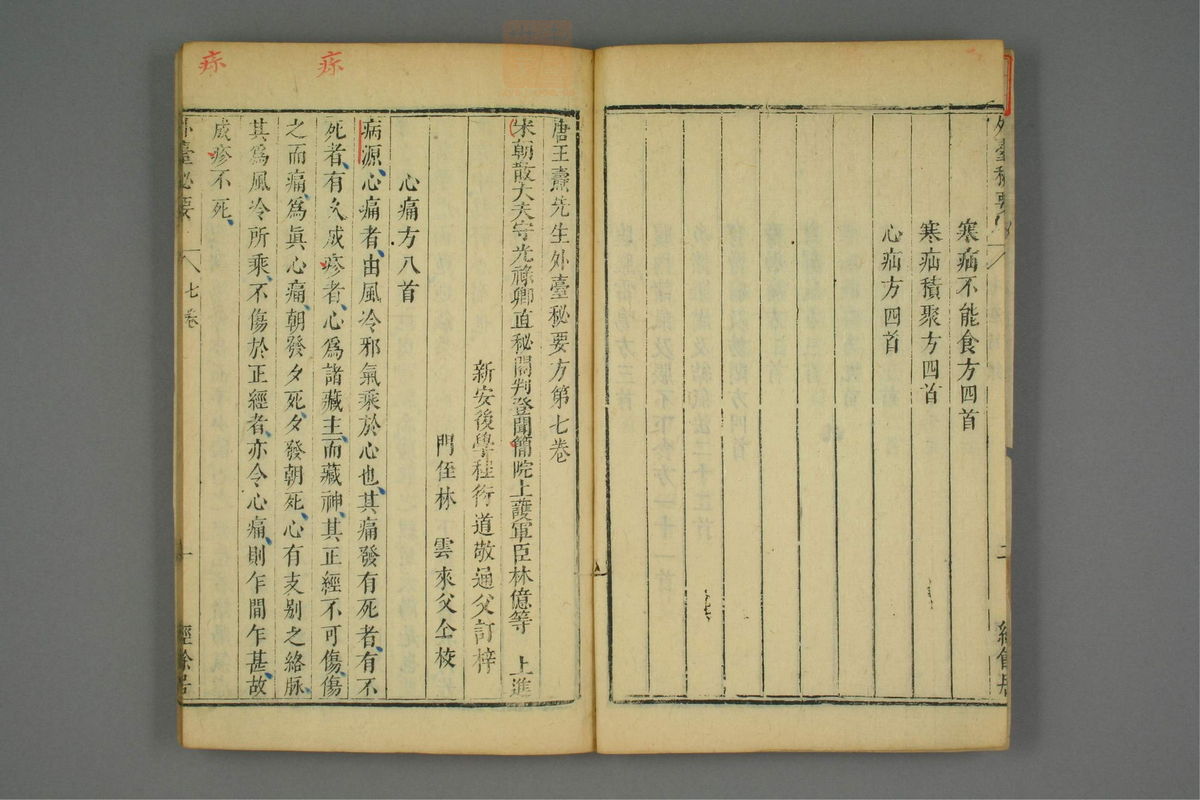 寒疝不能食方四首
寒疝積聚方四首
心疝方四首
外臺秘要
二
唐王燾先生外臺秘要方第七卷
宋朝散大夫守光祿卿直秘閣判登聞簡院上護軍臣林億等 上進
新安後學程衍道敬通父訂梓
門侄林 雲來父仝校
心痛方八首
病源心痛者由風冷邪氣乘於心也其痛發有死者有不
死者有久成疹者心為諸藏主而藏神其正經不可傷傷
之而痛為眞心痛朝發夕死夕發朝死心有支别之絡脉
其爲風冷所乘不傷於正經者亦令心痛則乍間乍甚故
成疹不死
外臺秘要
七卷
一
經餘居
疢
疢